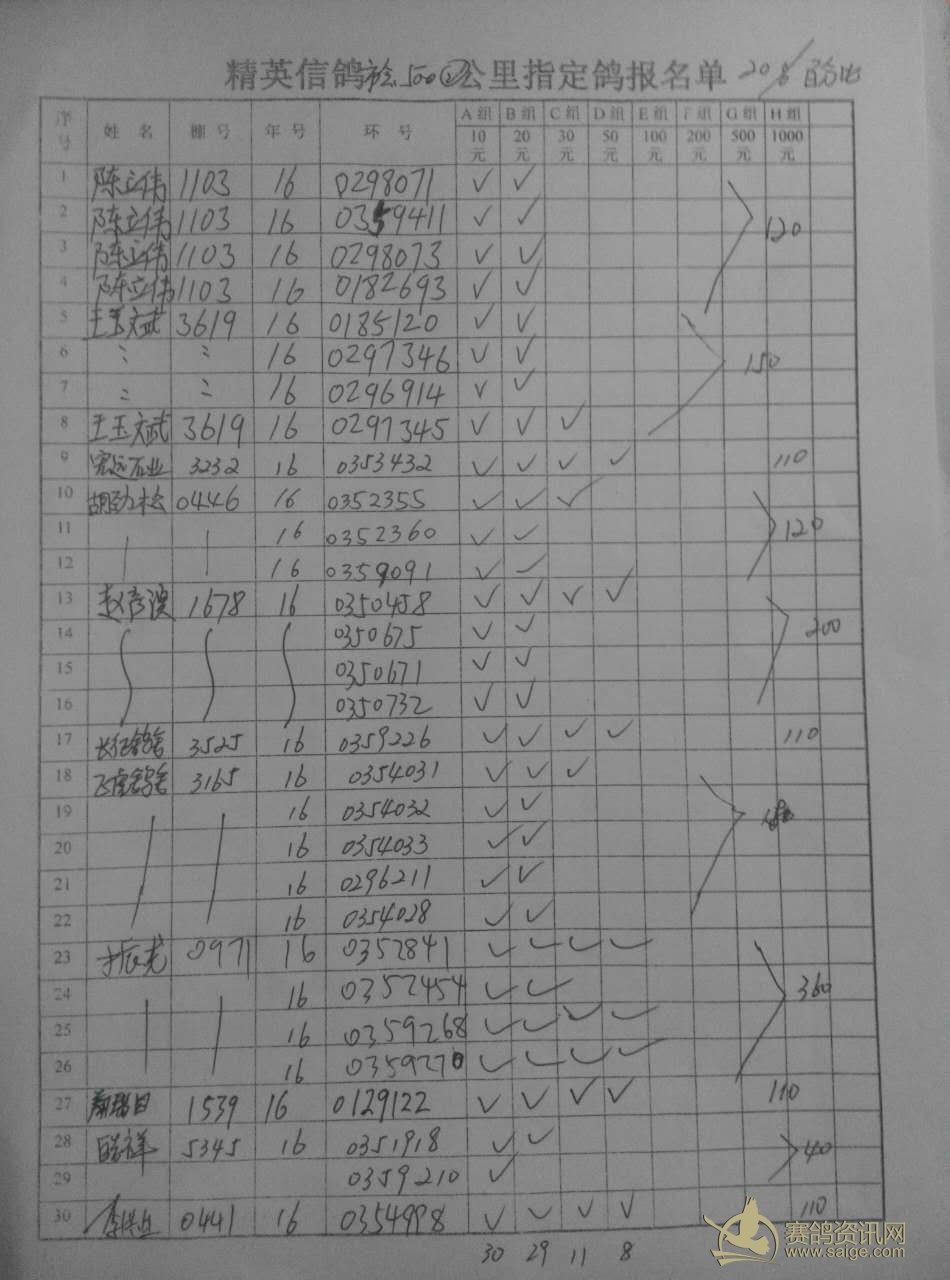 精英信鸽 500②公里指定鸽报名单
序号 姓 名 棚 号 年 号 环 号 A组 B组 C组 D组 E组 F组 G组 H组
10元 20元 30元 50元 100元 200元 500元 1000元
1 陈立伟 1103 16 0298071 ✓ ✓
2 陈立伟 1103 16 0359411 ✓ ✓ 120
3 陈立伟 1103 16 0298073 ✓ ✓
4 陈立伟 1103 16 0182693 ✓ ✓
5 王玉斌 3619 16 0185120 ✓ ✓
6 〃 〃 16 0297346 ✓ ✓ 150
7 〃 〃 16 0296914 ✓ ✓
8 王玉斌 3619 16 0297345 ✓ ✓ ✓
9 宏远石业 3232 16 0353432 ✓ ✓ ✓ ✓ 110
10 胡劲松 0446 16 0352355 ✓ ✓ ✓
11 16 0352360 ✓ ✓ 120
12 16 0359091 ✓ ✓
13 赵彦波 1678 16 0350458 ✓ ✓ ✓ ✓
14 0350675 ✓ ✓ 200
15 0350671 ✓ ✓
16 0350732 ✓ ✓
17 长征鸽舍 3525 16 0359226 ✓ ✓ ✓ ✓ 110
18 飞虎鸽舍 3165 16 0354031 ✓ ✓ ✓
19 16 0354032 ✓ ✓
20 16 0354033 ✓ ✓
21 16 0296211 ✓ ✓
22 16 0354028 ✓ ✓
23 0971 16 0352841 ✓ ✓ ✓ ✓
24 16 0352454 ✓ ✓ 360
25 16 0359268 ✓ ✓ ✓ ✓
26 16 0359270 ✓ ✓ ✓ ✓
27 1539 16 0129122 ✓ ✓ ✓ ✓ 110
28 5345 16 0351918 ✓ ✓ 40
29 0359210 ✓
30 0441 16 0354998 ✓ ✓ ✓ ✓ 110
30 29 11 8
赛鸽资讯网
www.saige.com